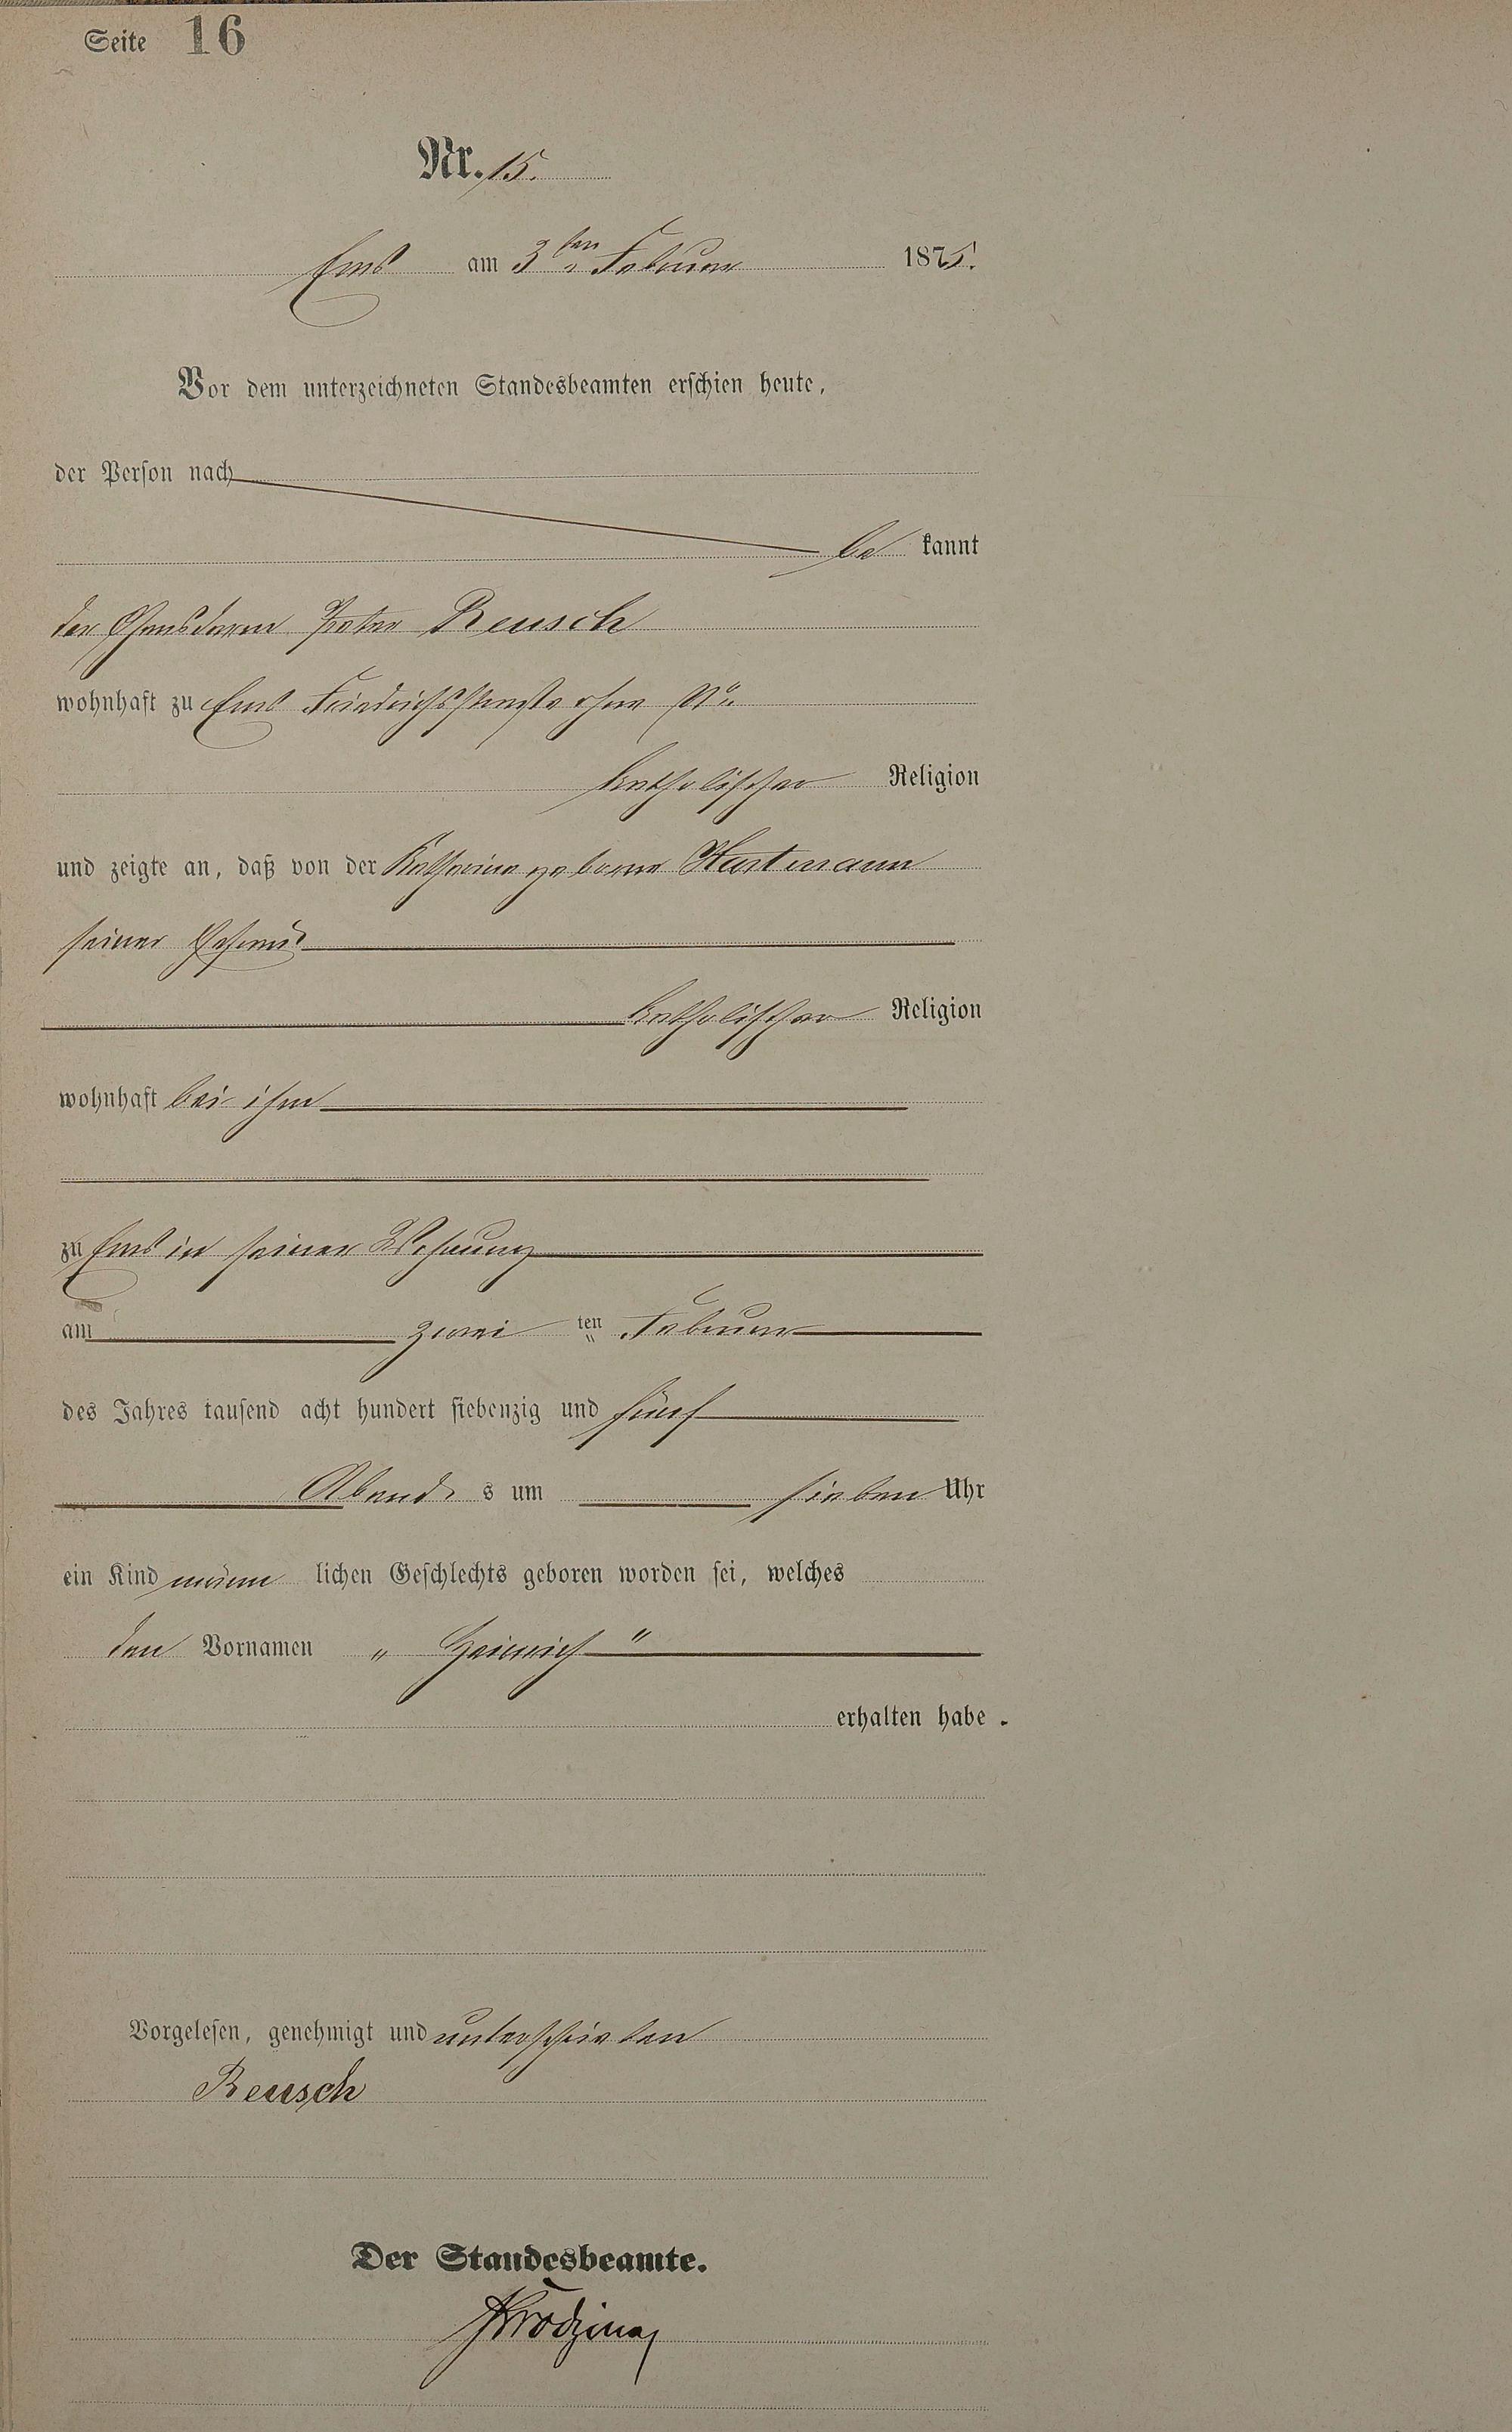 Seite 16
Nr. 15.
Ems am 3ten Februar 1875.
Vor dem unterzeichneten Standesbeamten erschien heute,
der Person nach
be kannt
der Gensdarm Peter Reusch
wohnhaft zu Ems Friedrichsstraße ohne No
katholischer Religion
und zeigte an, daß von der Katharina geborne Hartmann
seiner Ehefrau
katholischer Religion
wohnhaft bei ihm
zu Ems in seiner Wohnung
am zwei ten Februar
des Jahres tausend acht hundert siebenzig und fünf
Abend s um sieben Uhr
ein Kind männ lichen Geschlechts geboren worden sei, welches
den Vornamen „ Heinrich "
erhalten habe .
Vorgelesen, genehmigt und unterschrieben
Reusch
Der Standesbeamte.